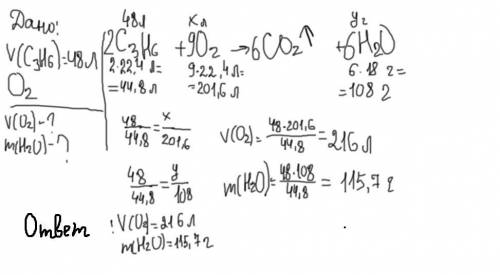 Дано:
V(C₃H₆)=48л
O₂
V(O₂)-?
m(H₂O)-?
48л xл yг
2C₃H₆ +9O₂ →6CO₂↑ +6H₂O
2·22,4л= 9·22,4л= 6·18г=
=44,8л =201,6л =108г
48/44,8=x/201,6 V(O₂)=48·201,6/44,8=216л
48/44,8=y/108 m(H₂O)=48·108/44,8=115,7г
Ответ: V(O₂)=216л
m(H₂O)=115,7г